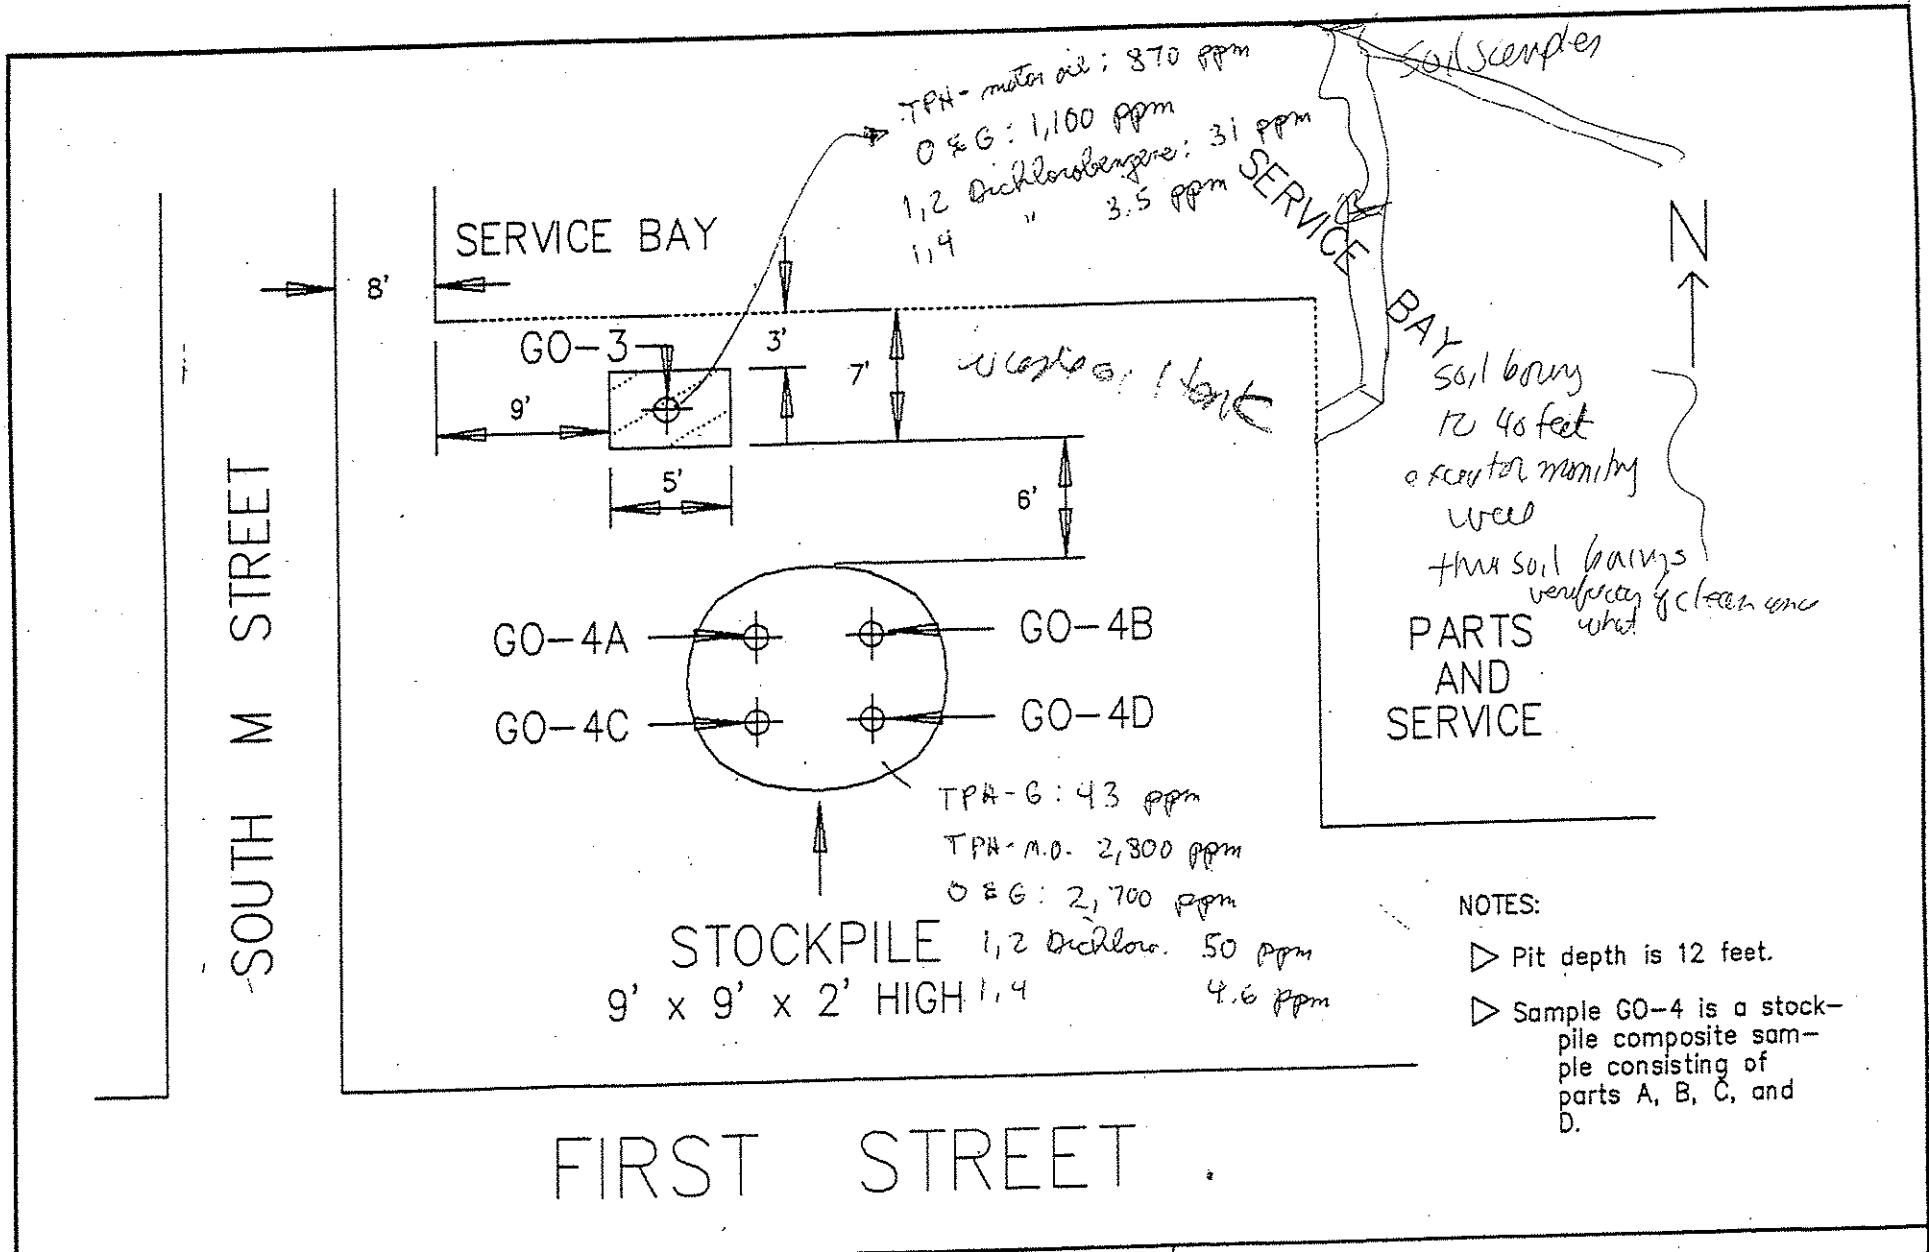 TPH- motor oil : 870 ppm
O & G : 1,100 ppm
1,2 Dichlorobenzene : 31 ppm
1,4 " 3.5 ppm
soil samples
SERVICE BAY
SERVICE BAY
N
8'
GO-3
3'
7'
waste oil tank
9'
5'
6'
soil boring
to 40 feet
well
soil borings
what
SOUTH M STREET
GO-4A
GO-4B
GO-4C
GO-4D
PARTS
AND
SERVICE
TPH-G : 43 ppm
TPH-M.O. 2,800 ppm
O & G : 2,700 ppm
1,2 Dichloro. 50 ppm
1,4 4.6 ppm
STOCKPILE
9' x 9' x 2' HIGH
NOTES:
Pit depth is 12 feet.
Sample GO-4 is a stock-
pile composite sam-
ple consisting of
parts A, B, C, and
D.
FIRST STREET